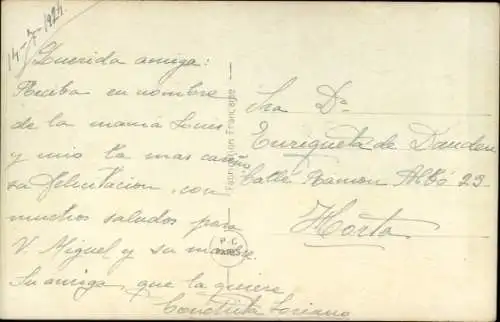 14-7-1924
Querida amiga:
Reciba en nombre
de la mamá Louis
y mio la mas cariño
sa felicitacion, con
muchos saludos para
V. Miguel y su madre.
Su amiga que la quiere
Conchita Soriano
Fabrication Française
P.C
Sra Dª
Enriqueta de Dauden
Calle Ramon Albó 23
Horta